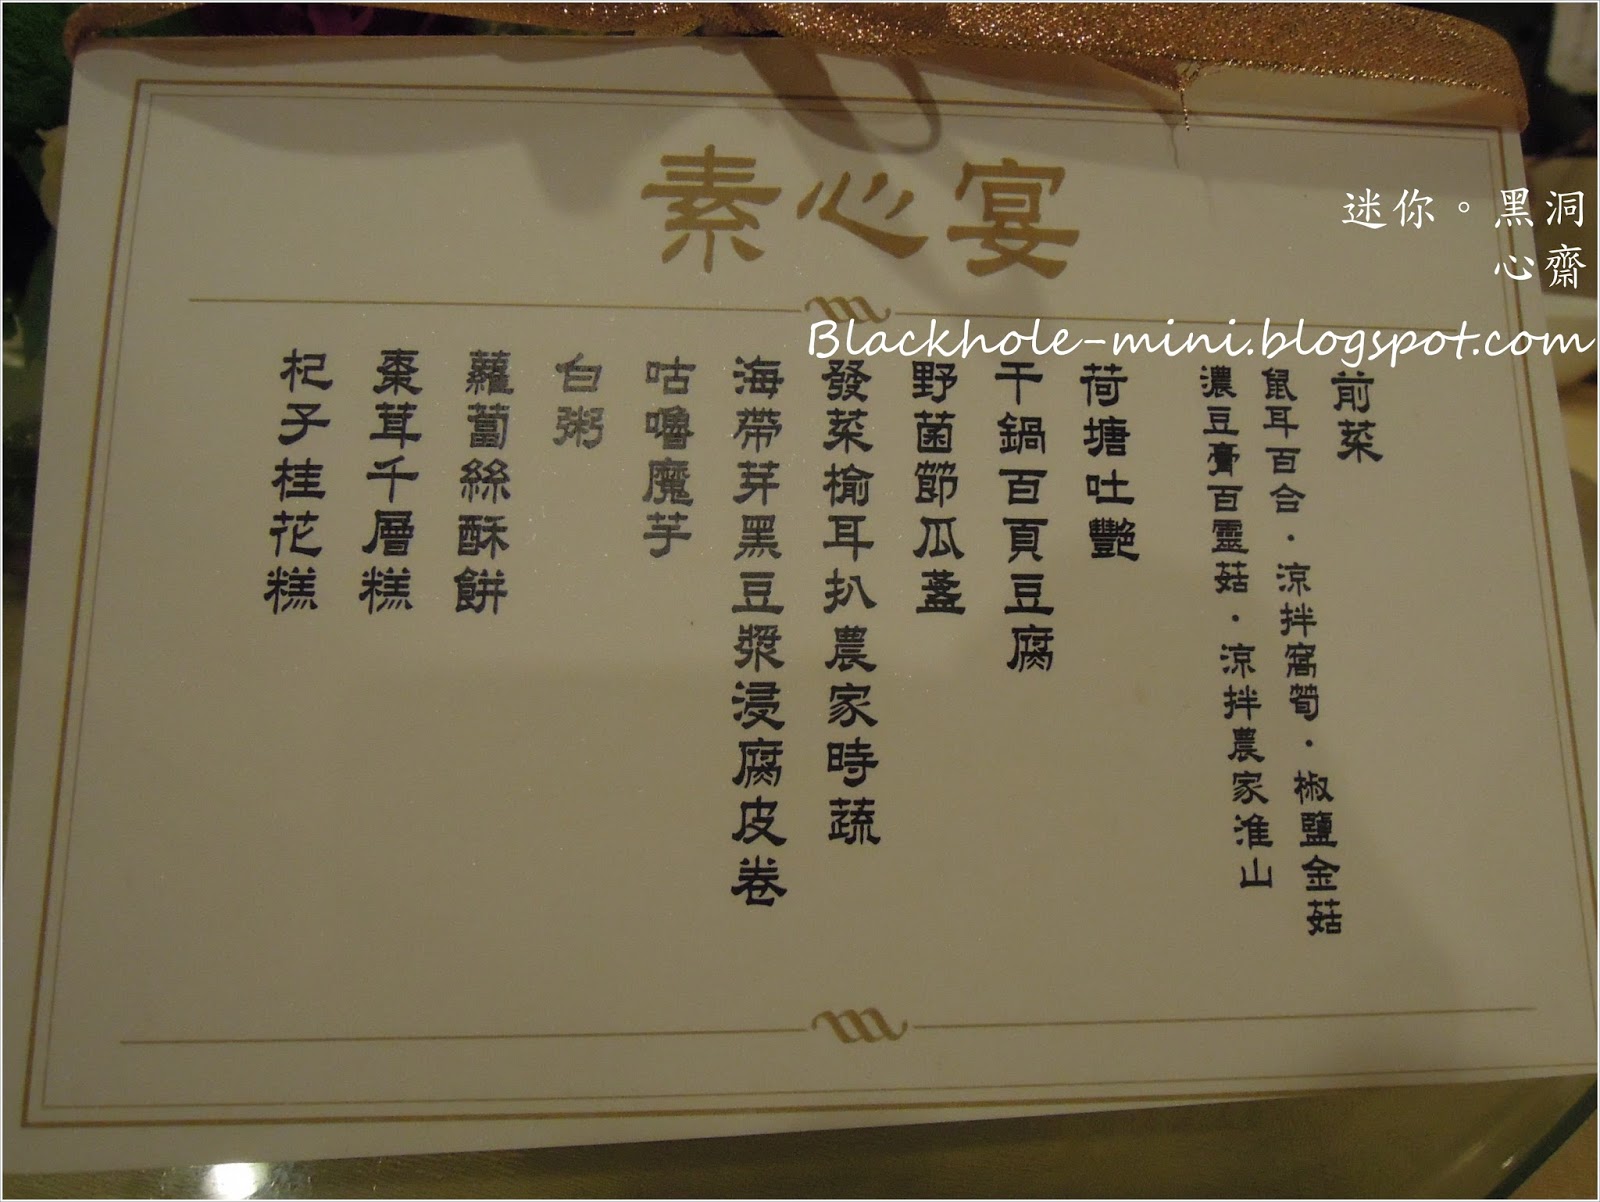 素心宴
迷你。黑洞
心齋
Blackhole-mini.blogspot.com
前菜
鼠耳百合．涼拌窩筍．椒鹽金菇
濃豆膏百靈菇．涼拌農家淮山
荷塘吐艷
干鍋百頁豆腐
野菌節瓜盞
發菜榆耳扒農家時蔬
海帶芽黑豆漿浸腐皮卷
咕嚕魔芋
白粥
蘿蔔絲酥餅
棗茸千層糕
杞子桂花糕